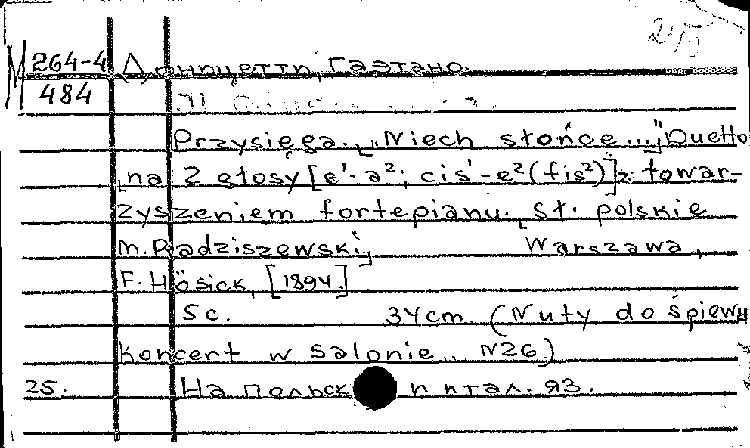 M 264-4 Доницетти, Гаэтано.
484
Przysięga. „Niech słońce...," Duetto
na 2 głosy [e¹-a²; cis¹-e²(fis²)] z towar-
zyszeniem fortepianu. St. polskie
M. Radziszewski, Warszawa,
F. Hösick, [1894.]
5 c. 34 cm. (Nuty do śpiewu
Koncert w salonie. N26)
25. На польск. и итал. яз.